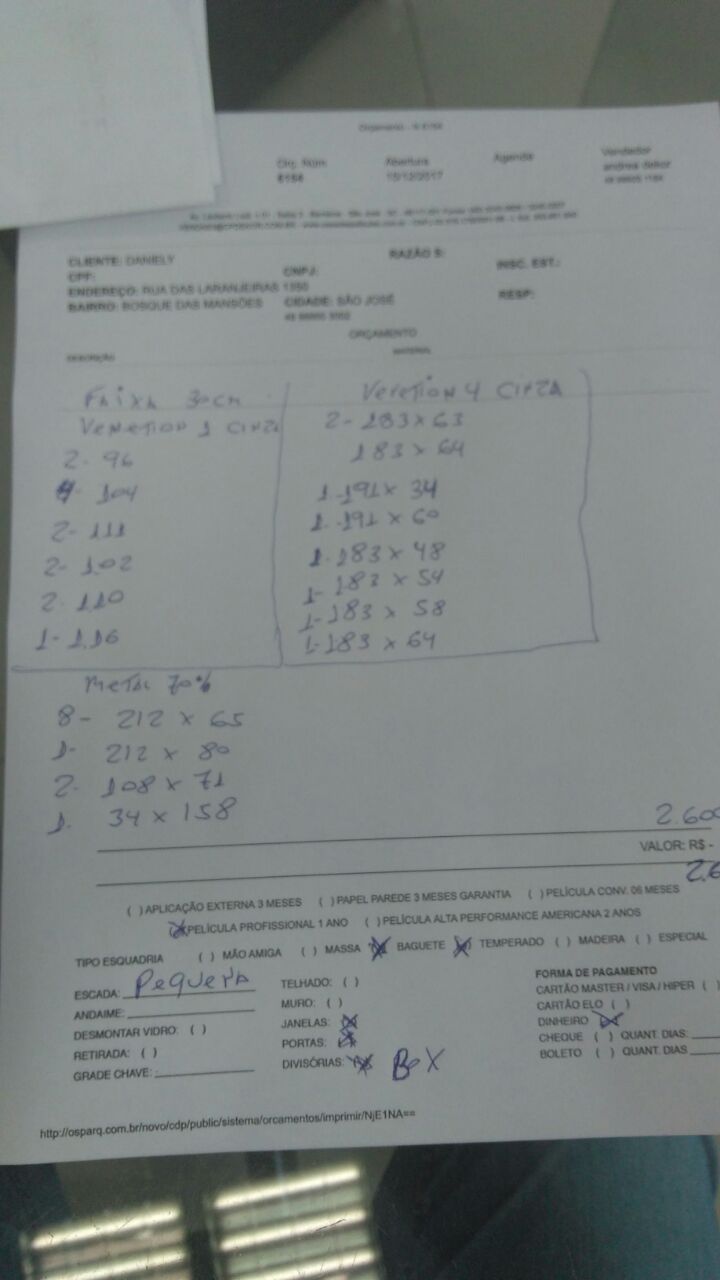 Orç. Núm
Abertura
Agenda
Vendedor
6154
15/12/2017
CLIENTE: DANIELY
RAZÃO S:
CPF:
CNPJ:
INSC. EST.:
ENDEREÇO: RUA DAS LARANJEIRAS
BAIRRO: BOSQUE DAS MANSÕES
CIDADE: SÃO JOSÉ
RESP:
ORÇAMENTO
DESCRIÇÃO
MATERIAL
FAIXA 30CM
VENETION 1 CINZA
2- 96
4- 104
2- 111
2- 102
2- 110
1- 116
VENETION 4 CINZA
2- 183 x 63
183 x 64
1- 191 x 34
1- 191 x 60
1- 183 x 48
1- 183 x 54
1- 183 x 58
1- 183 x 64
METAL 70%
8- 212 x 65
1- 212 x 80
2- 108 x 71
1. 34 x 158
2.600
VALOR: R$ -
2.6
( ) APLICAÇÃO EXTERNA 3 MESES ( ) PAPEL PAREDE 3 MESES GARANTIA ( ) PELÍCULA CONV. 06 MESES
(X) PELÍCULA PROFISSIONAL 1 ANO ( ) PELÍCULA ALTA PERFORMANCE AMERICANA 2 ANOS
TIPO ESQUADRIA ( ) MÃO AMIGA ( ) MASSA (X) BAGUETE (X) TEMPERADO ( ) MADEIRA ( ) ESPECIAL
ESCADA: Pequena
ANDAIME:
DESMONTAR VIDRO: ( )
RETIRADA: ( )
GRADE CHAVE:
TELHADO: ( )
MURO: ( )
JANELAS: (X)
PORTAS: (X)
DIVISÓRIAS: (X) BOX
FORMA DE PAGAMENTO
CARTÃO MASTER / VISA / HIPER ( )
CARTÃO ELO ( )
DINHEIRO (X)
CHEQUE ( ) QUANT. DIAS:
BOLETO ( ) QUANT. DIAS
http://osparq.com.br/novo/cdp/public/sistema/orcamentos/imprimir/NjE1NA==